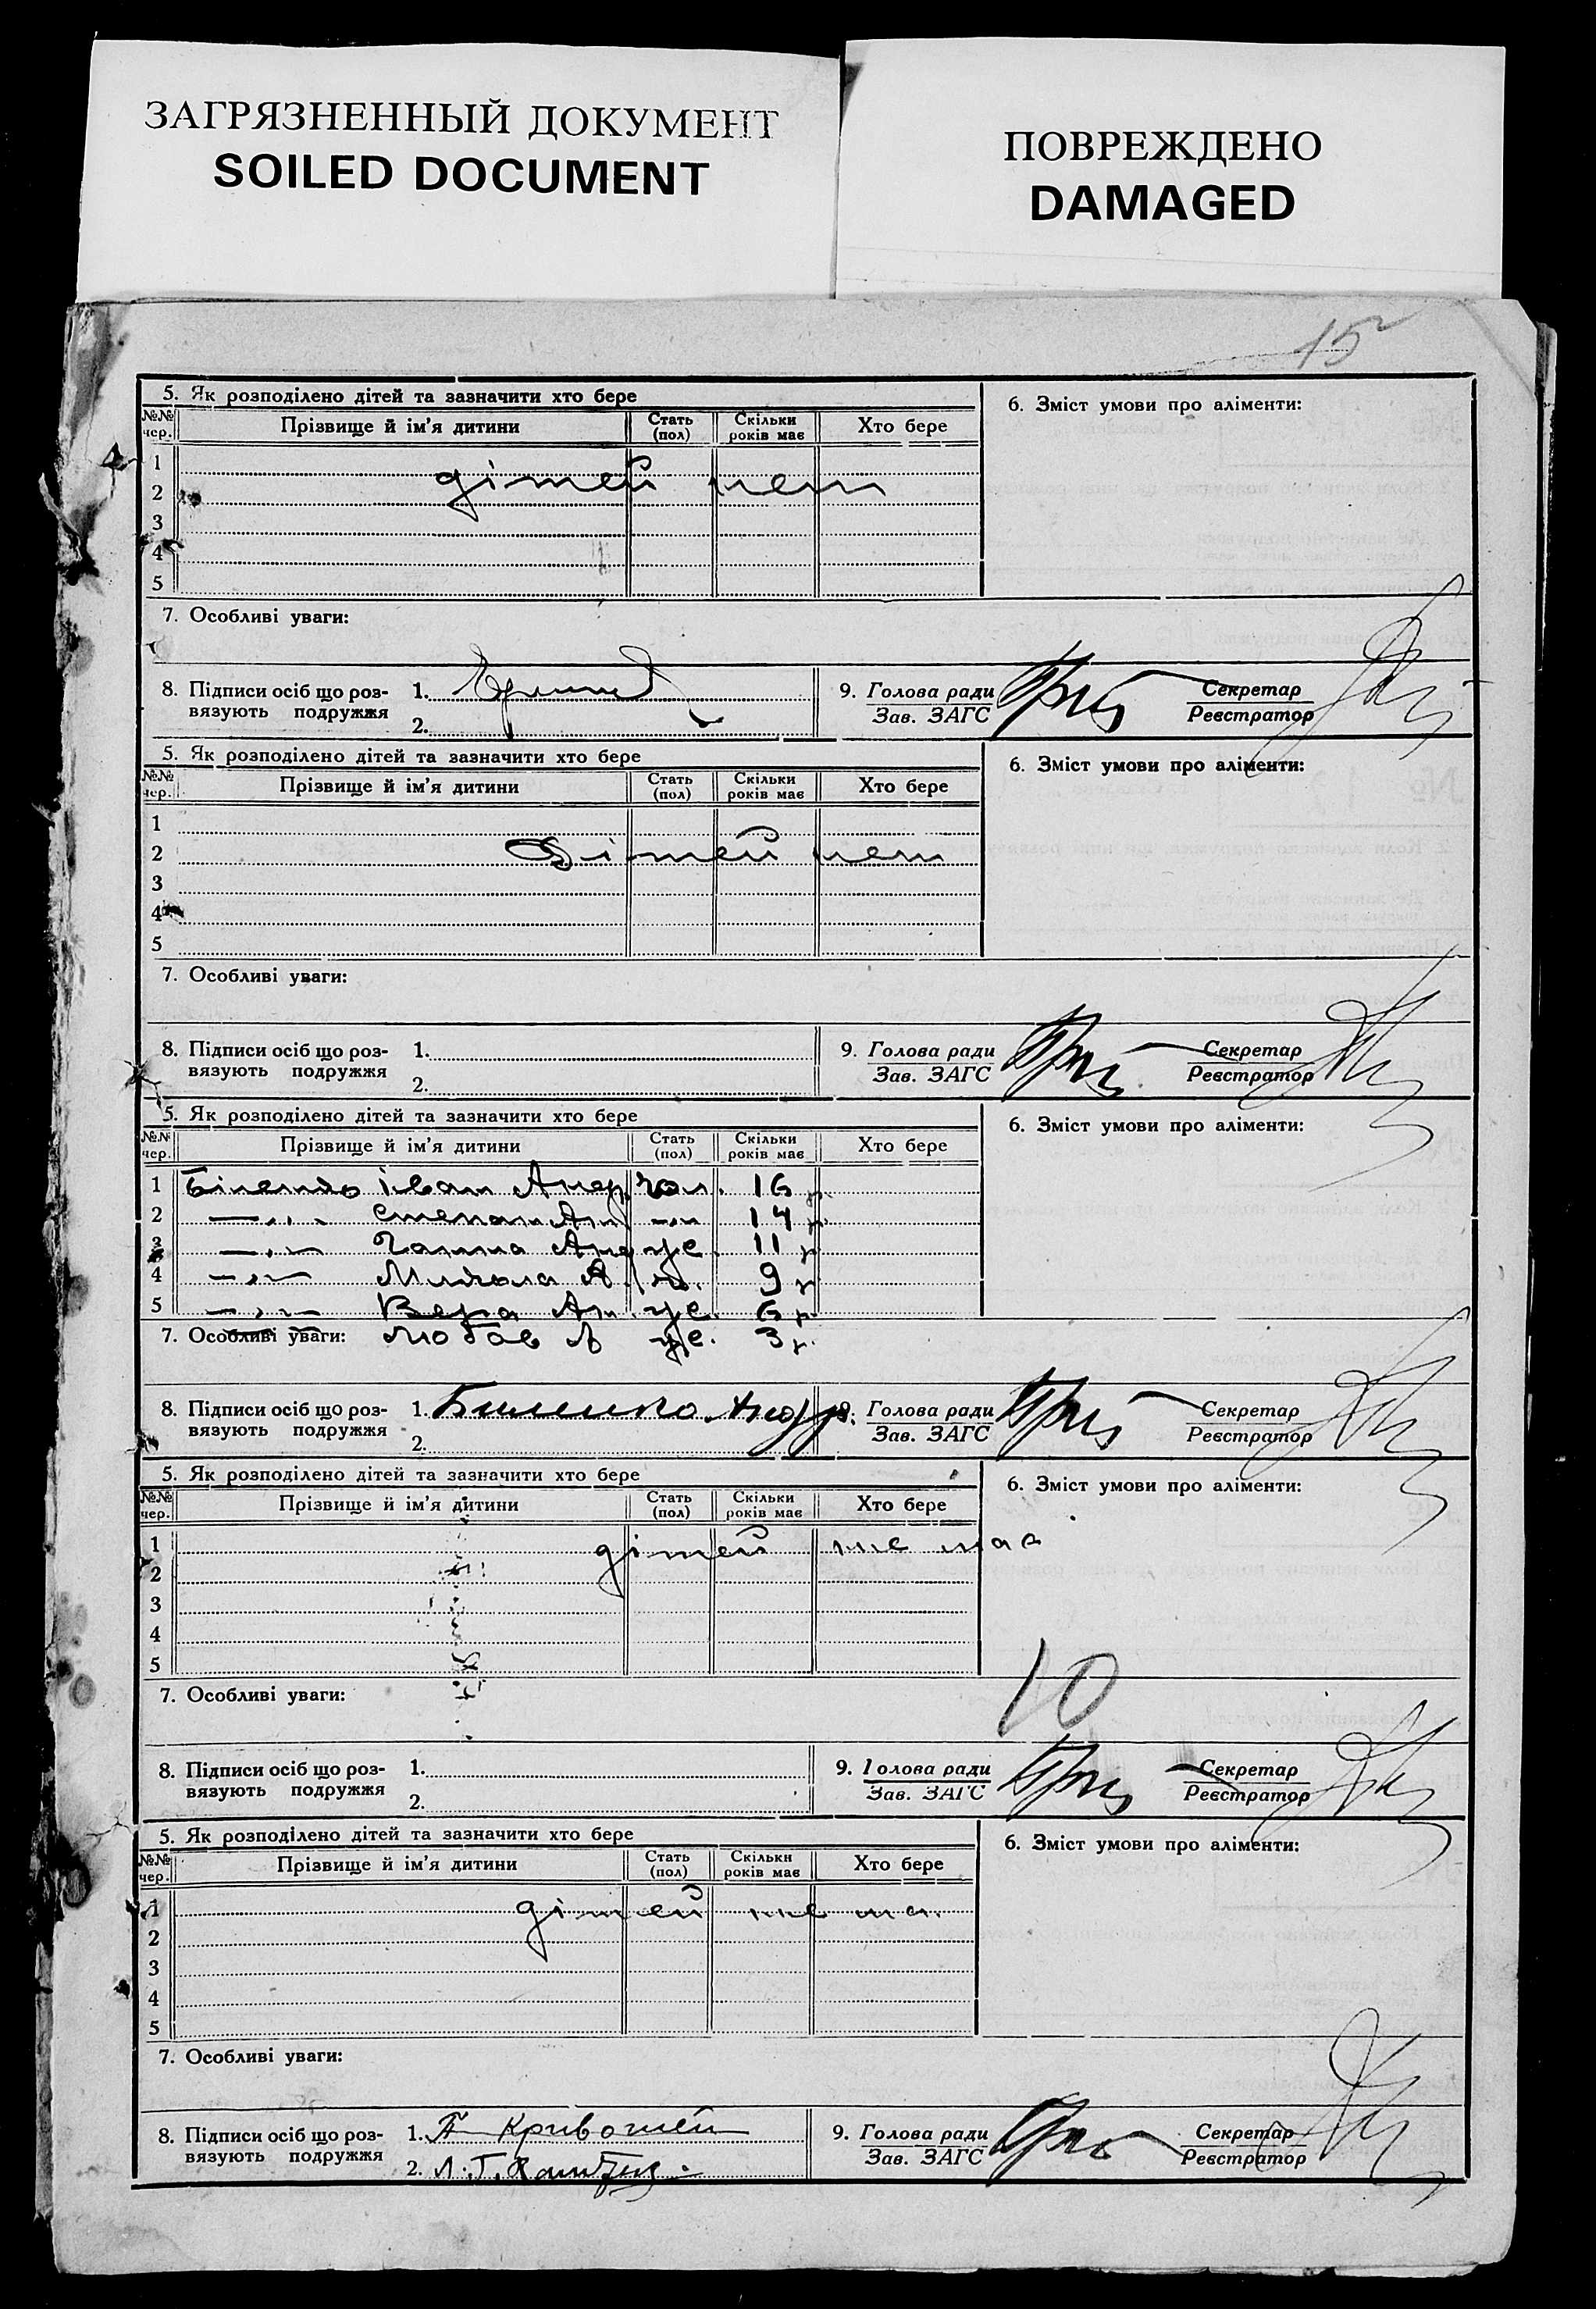 ЗАГРЯЗНЕННЫЙ ДОКУМЕНТ
SOILED DOCUMENT
ПОВРЕЖДЕНО
DAMAGED
15
5. Як розподілено дітей та зазначити хто бере
6. Зміст умови про аліменти:
№№ чер. Прізвище й ім'я дитини Стать (пол) Скільки років має Хто бере
1
2 дітей нет
3
4
5
7. Особливі уваги:
8. Підписи осіб що роз- 1.
вязують подружжя 2.
9. Голова ради Секретар
Зав. ЗАГС Реєстратор
5. Як розподілено дітей та зазначити хто бере
6. Зміст умови про аліменти:
№№ чер. Прізвище й ім'я дитини Стать (пол) Скільки років має Хто бере
1
2 Дітей нет
3
4
5
7. Особливі уваги:
8. Підписи осіб що роз- 1.
вязують подружжя 2.
9. Голова ради Секретар
Зав. ЗАГС Реєстратор
5. Як розподілено дітей та зазначити хто бере
6. Зміст умови про аліменти:
№№ чер. Прізвище й ім'я дитини Стать (пол) Скільки років має Хто бере
1 Біленко Іван Андр. чол. 16 р.
2 —„— Степан Анд —„— 14 р.
3 —„— Ганна Анд же. 11 р.
4 —„— Микола А. 9 р.
5 —„— Вера Ан. же. 6 р.
7. Особливі уваги: Любов А же. 3 р.
8. Підписи осіб що роз- 1. Биленко Андр.
вязують подружжя 2.
9. Голова ради Секретар
Зав. ЗАГС Реєстратор
5. Як розподілено дітей та зазначити хто бере
6. Зміст умови про аліменти:
№№ чер. Прізвище й ім'я дитини Стать (пол) Скільки років має Хто бере
1 дітей не має
2
3
4
5
10
7. Особливі уваги:
8. Підписи осіб що роз- 1.
вязують подружжя 2.
9. Голова ради Секретар
Зав. ЗАГС Реєстратор
5. Як розподілено дітей та зазначити хто бере
6. Зміст умови про аліменти:
№№ чер. Прізвище й ім'я дитини Стать (пол) Скільки років має Хто бере
1 дітей нема
2
3
4
5
7. Особливі уваги:
8. Підписи осіб що роз- 1. Кривошей
вязують подружжя 2.
9. Голова ради Секретар
Зав. ЗАГС Реєстратор